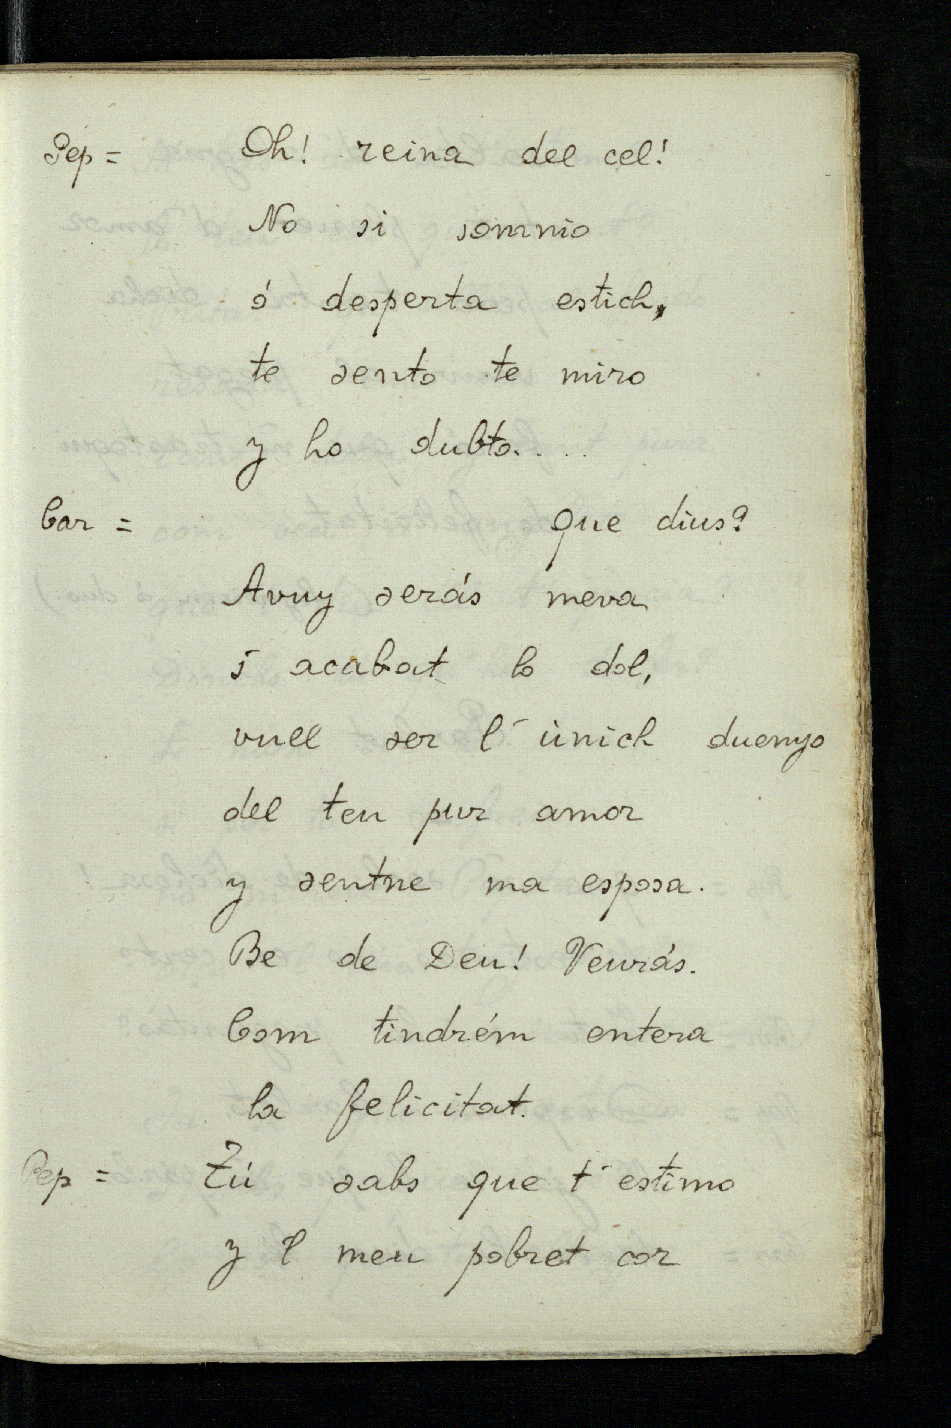 Pep = Oh! reina del cel!
No si somnio
ó desperta estich,
te sento te miro
y ho dubto....
Car = que dius?
Avuy serás meva
s' acabat lo dol,
vull ser l' únich duenyo
del teu pur amor
y sentne ma esposa.
Be de Deu! Veurás.
Com tindrém entera
la felicitat.
Pep = Tú sabs que t' estimo
y 'l meu pobret cor